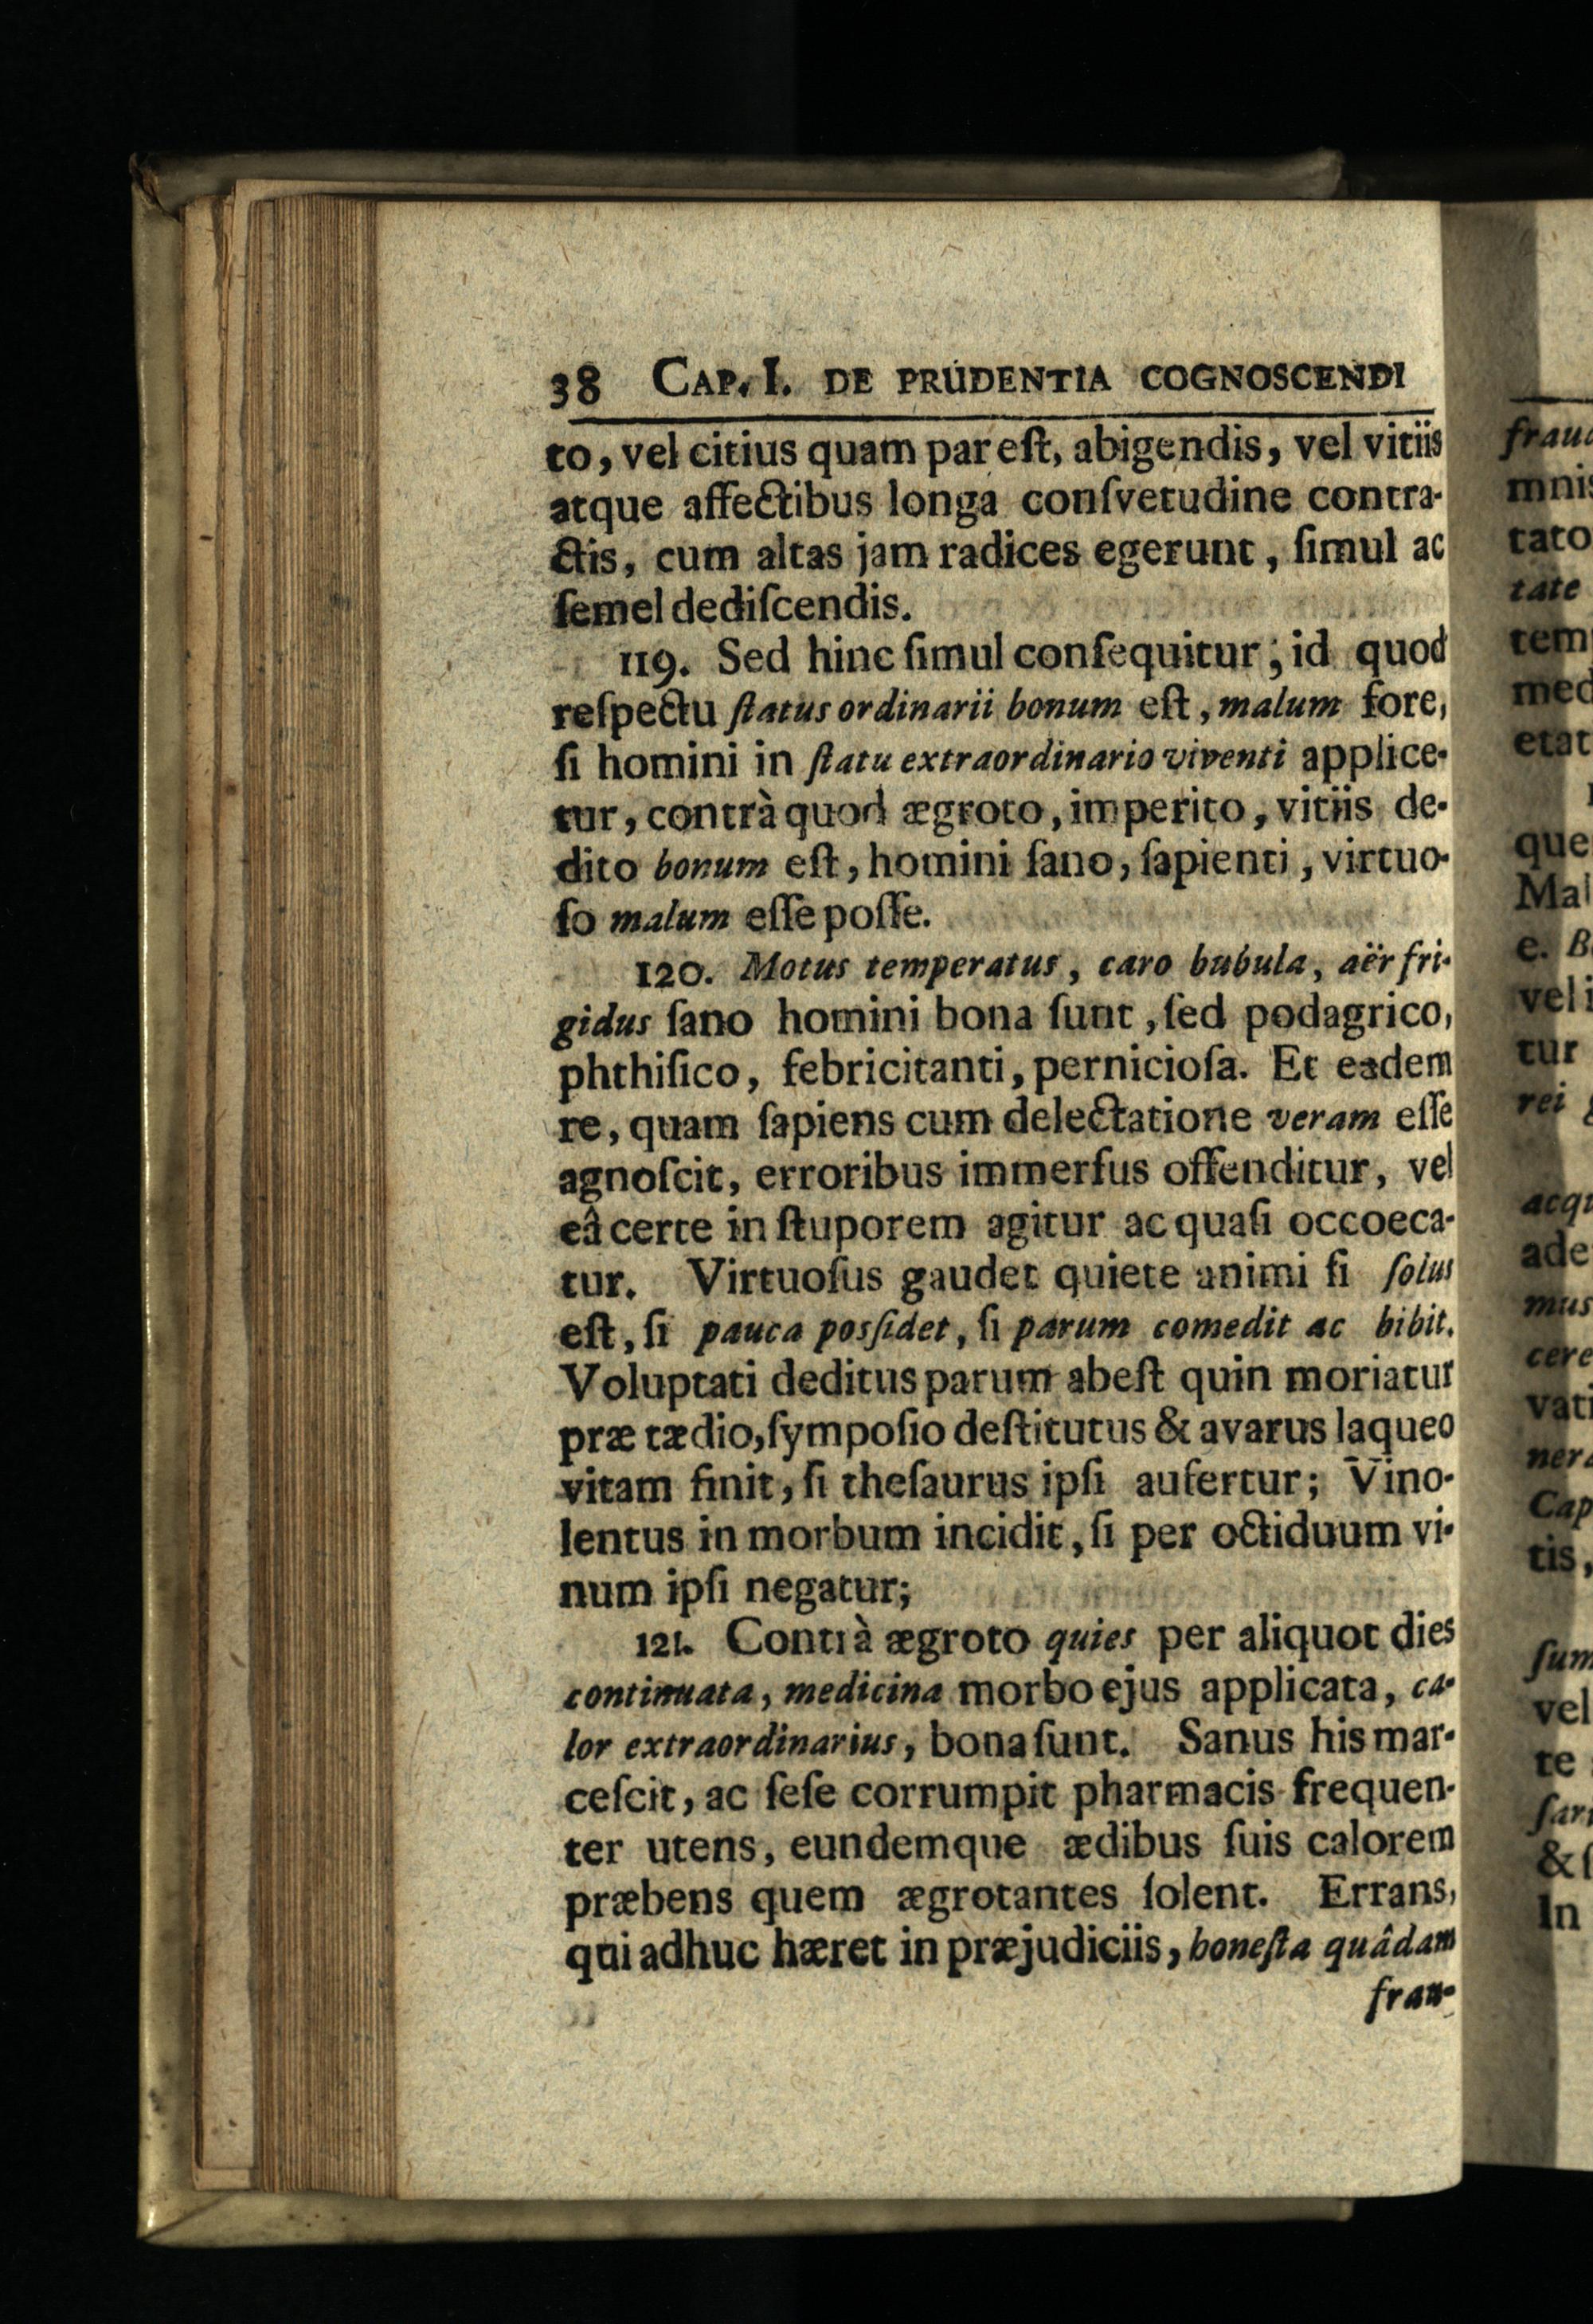 38 CAP. I. DE PRUDENTIA COGNOSCENDI
to, vel citius quam par eſt, abigendis, vel vitiis
atque affectibus longa conſvetudine contra-
ctis, cum altas jam radices egerunt, ſimul ac
ſemel dediſcendis.
119. Sed hinc ſimul conſequitur; id quod
reſpectu ſtatus ordinarii bonum eſt, malum fore,
ſi homini in ſtatu extraordinario viventi applice-
tur, contrà quod ægroto, imperito, vitiis de-
dito bonum eſt, homini ſano, ſapienti, virtuo-
ſo malum eſſe poſſe.
120. Motus temperatus, caro bubula, aër fri-
gidus ſano homini bona ſunt, ſed podagrico,
phthiſico, febricitanti, pernicioſa. Et eadem
re, quam ſapiens cum delectatione veram eſſe
agnoſcit, erroribus immerſus offenditur, vel
eâ certe in ſtuporem agitur ac quaſi occoeca-
tur. Virtuoſus gaudet quiete animi ſi ſolus
eſt, ſi pauca posſidet, ſi parum comedit ac bibit.
Voluptati deditus parum abeſt quin moriatur
præ tædio, ſympoſio deſtitutus & avarus laqueo
vitam finit, ſi theſaurus ipſi aufertur; Vino-
lentus in morbum incidit, ſi per octiduum vi-
num ipſi negatur;
121. Contrà ægroto quies per aliquot dies
continuata, medicina morbo ejus applicata, ca-
lor extraordinarius, bona ſunt. Sanus his mar-
ceſcit, ac ſeſe corrumpit pharmacis frequen-
ter utens, eundemque ædibus ſuis calorem
præbens quem ægrotantes ſolent. Errans,
qui adhuc hæret in præjudiciis, honeſta quâdam
frau-
mnis
tato
tate
tem
med
etat
que
e. B
vel i
tur
rei
ade
mus
cere
vati
Cap
tis,
ſum
vel
te
In